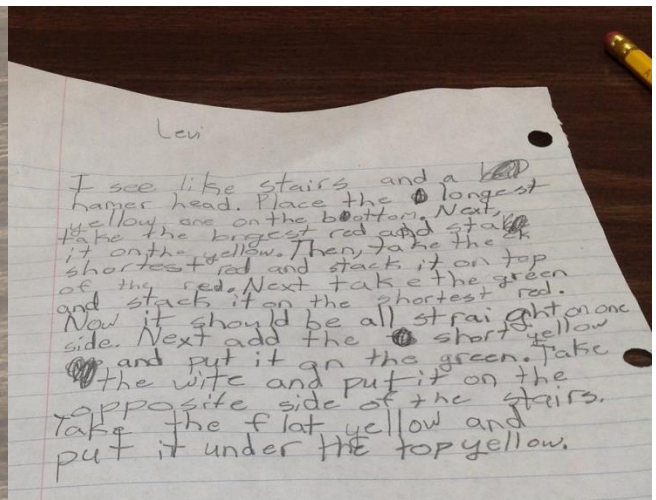 Levi
I see like stairs and a
hamer head. Place the longest
yellow one on the bottom. Next,
take the brgest red and stak
it on the yellow. Then, take the
shortest red and stack it on top
of the red. Next take the green
and stack it on the shortest red.
Now it should be all straight on one
side. Next add the short yellow
and put it on the green. Take
the wite and put it on the
opposite side of the stairs.
Take the flat yellow and
put it under the top yellow.